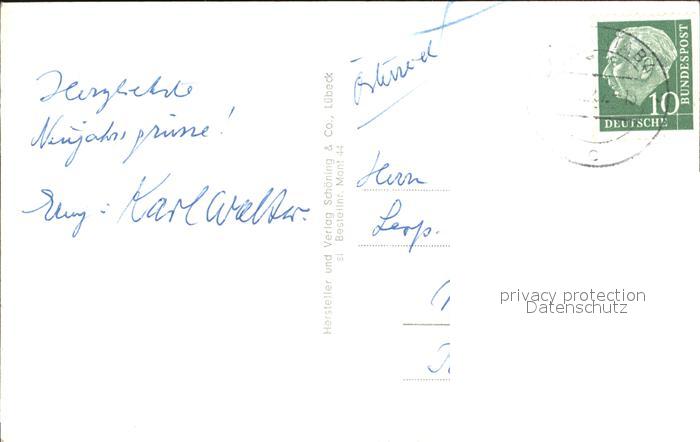 Herzlichste
Neujahrsgrüsse!
Karl Walter.
Hersteller und Verlag Schöning & Co., Lübeck
sl Bestellnr. Mont 44
Österreich
Herrn
Leop.
10
DEUTSCHE
BUNDESPOST
privacy protection
Datenschutz